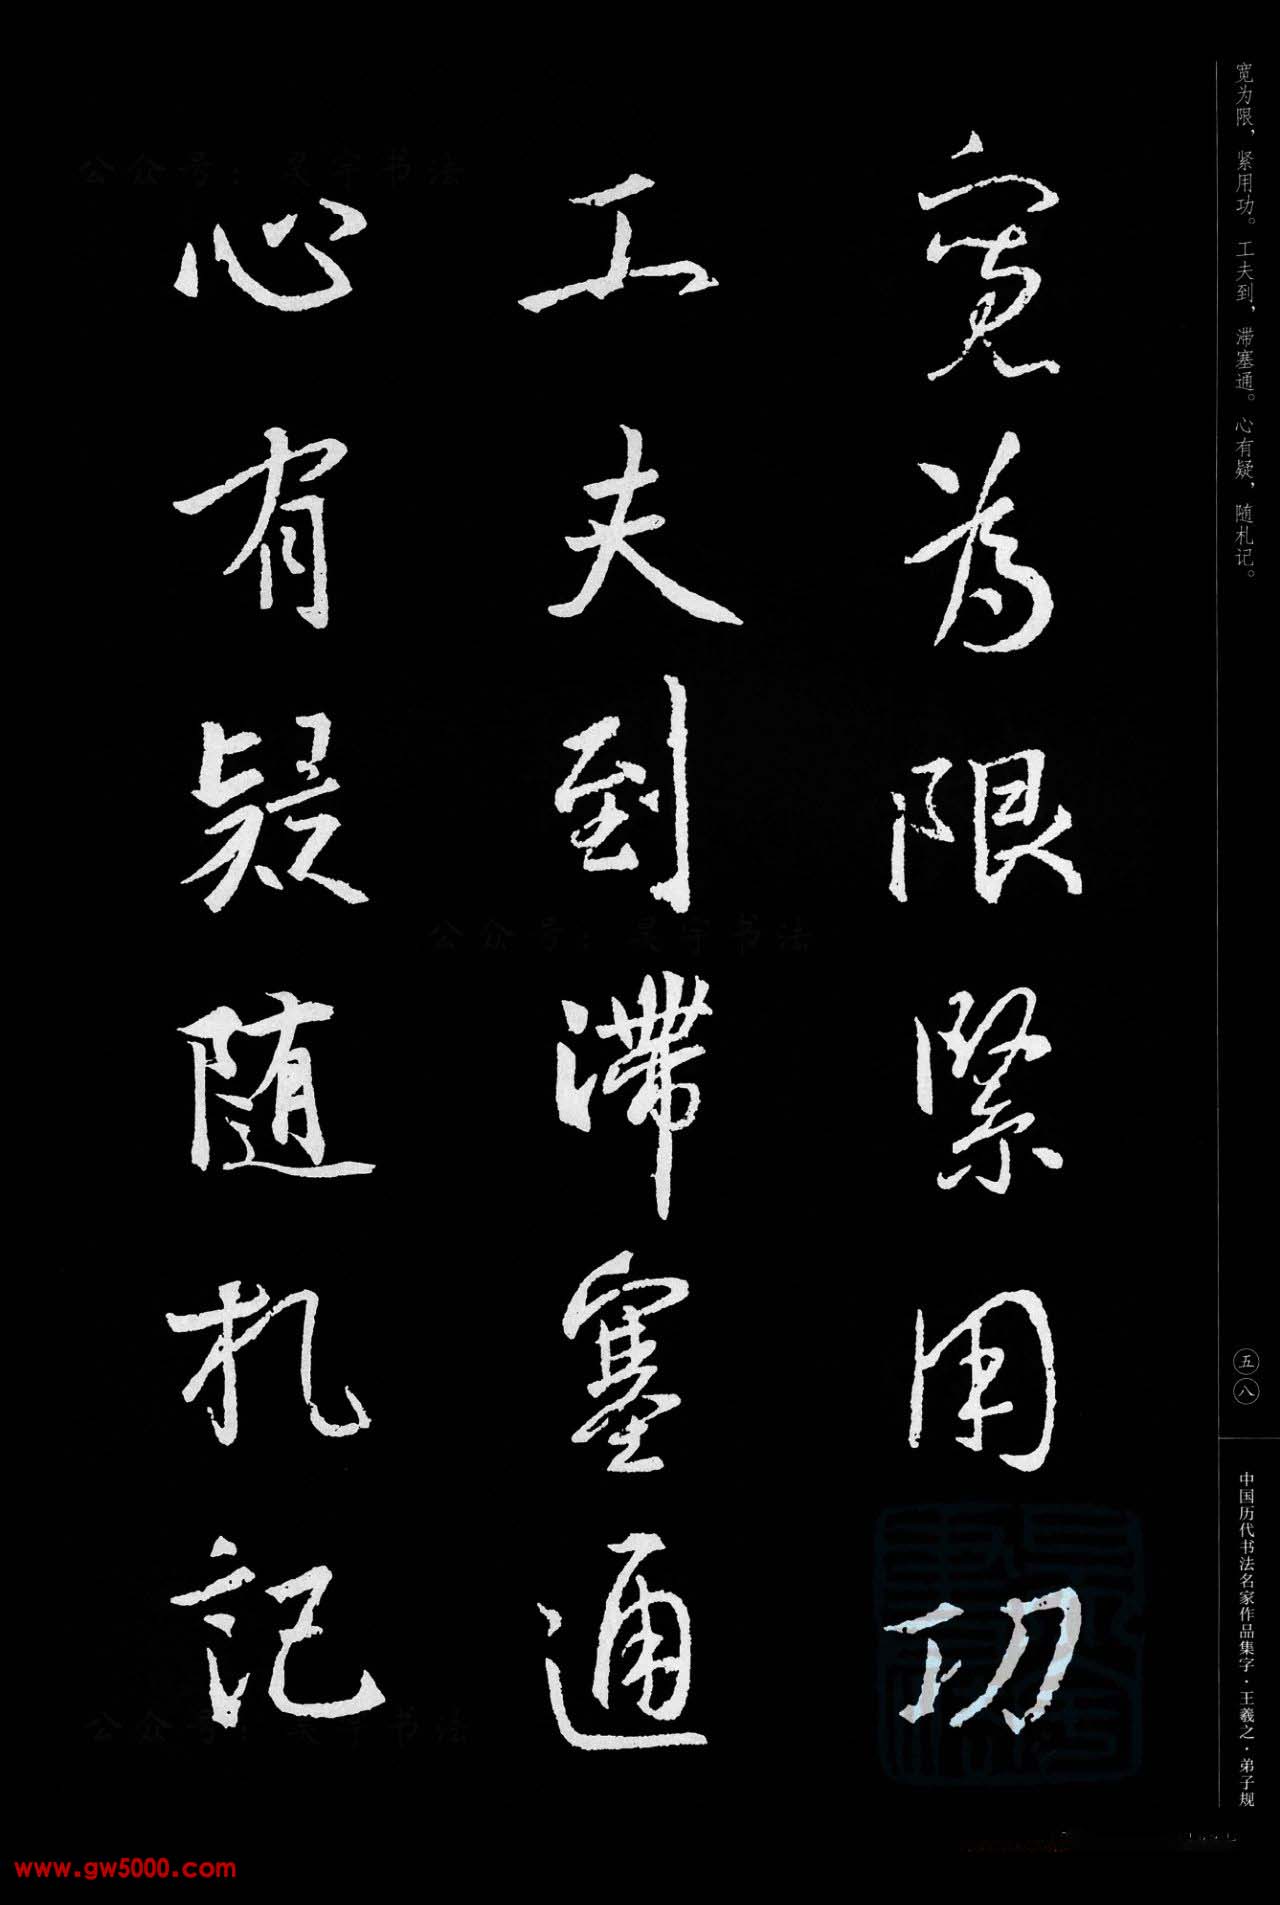 寬為限緊用功
工夫到滯塞通
心有疑隨札記
宽为限，紧用功。工夫到，滞塞通。心有疑，随札记。
五八
中国历代书法名家作品集字·王羲之·弟子规
公众号：昊宇书法
公众号：昊宇书法
公众号：昊宇书法
www.gw5000.com